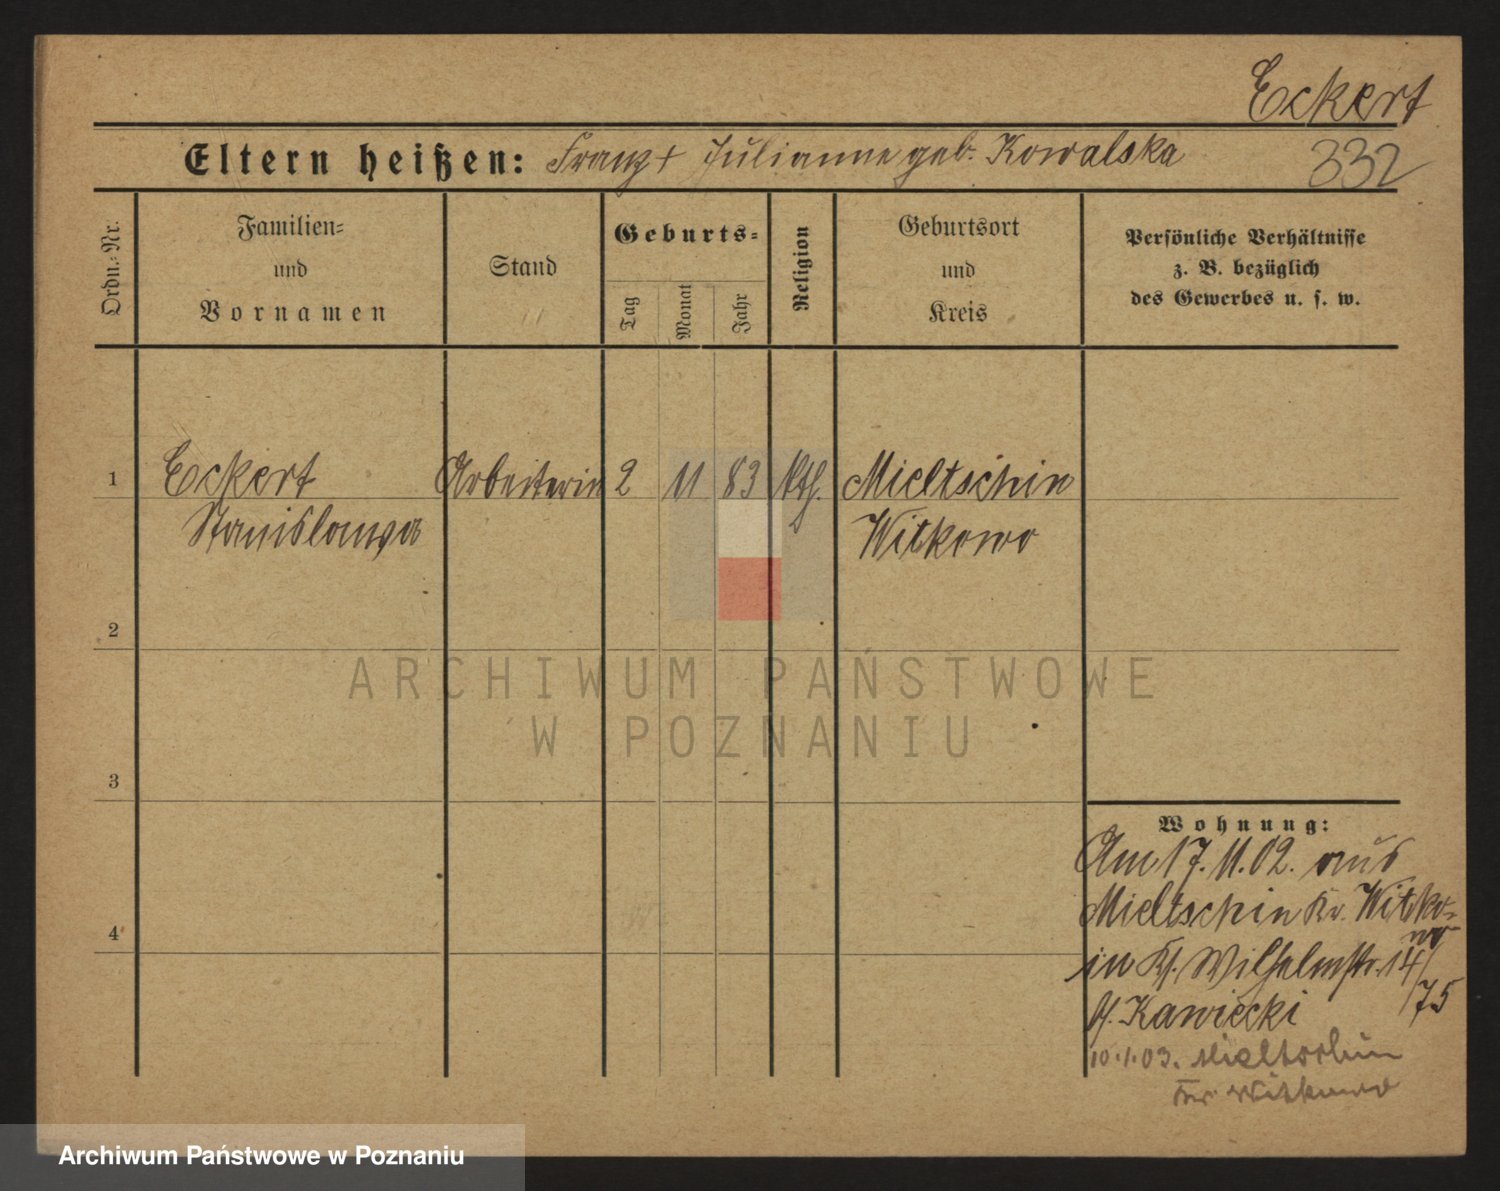 Eckert
Eltern heißen: Franz + Julianne geb. Kowalska
332
Ordn.-Nr.
Familien-
und
Vornamen
Stand
Geburts-
Tag
Monat
Jahr
Religion
Geburtsort
und
Kreis
Persönliche Verhältnisse
z. B. bezüglich
des Gewerbes u. s. w.
1 Eckert Arbeiterin 2 11 83 kth. Mieltschin
Stanislawa Witkowo
2
3
4
Wohnung:
Am 17. 11. 02. aus
Mieltschin Kr. Witko-
wo
in Wilhelmstr. 14/
75
Kawiecki
10.1.03. Mieltschin
Kr. Witkowo
ARCHIWUM PAŃSTWOWE
W POZNANIU
Archiwum Państwowe w Poznaniu